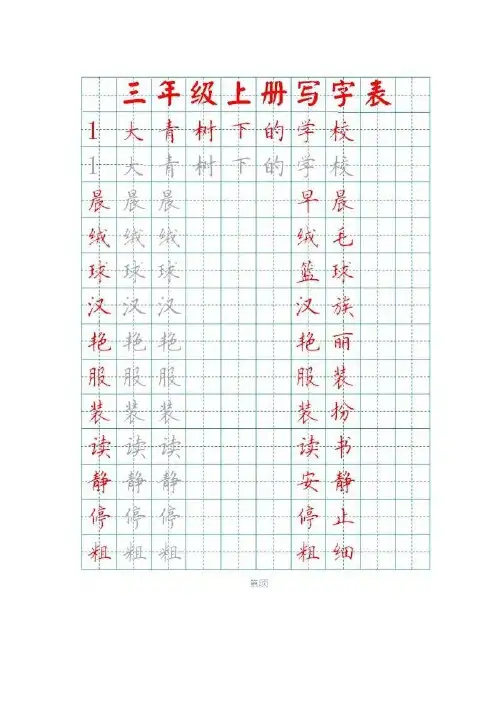 三年级上册写字表
1 大青树下的学校
1 大青树下的学校
晨晨晨 早晨
绒绒绒 绒毛
球球球 篮球
汉汉汉 汉族
艳艳艳 艳丽
服服服 服装
装装装 装扮
读读读 读书
静静静 安静
停停停 停止
粗粗粗 粗细